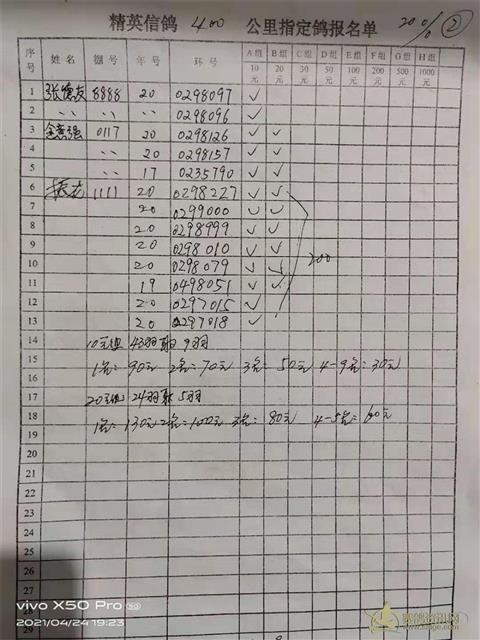 精英信鸽 400 公里指定鸽报名单 20% ②
序号 姓名 棚号 年号 环号 A组10元 B组20元 C组30元 D组50元 E组100元 F组200元 G组500元 H组1000元
1 张德友 8888 20 0298097 ✓
2 〃 〃 〃 0298096 ✓
3 0117 20 0298126 ✓ ✓
4 〃 20 0298157 ✓ ✓
5 〃 17 0235790 ✓ ✓
6 1111 20 0298227 ✓ ✓
7 20 0299000 ✓ ✓
8 20 0298999 ✓ ✓
9 20 0298010 ✓ ✓
200
10 20 0298079 ✓ ✓
11 19 0498051 ✓ ✓
12 20 0297015 ✓
13 20 0297018 ✓
14 10元组 43羽取9羽
15
16 1名:90元 2名:70元 3名:50元 4-9名:30元
17 20元组 24羽取5羽
18 1名:130元 2名:100元 3名:80元 4-5名:60元
19
20
21
22
23
24
25
26
27
28
29
vivo X50 Pro
2021/04/24 19:23